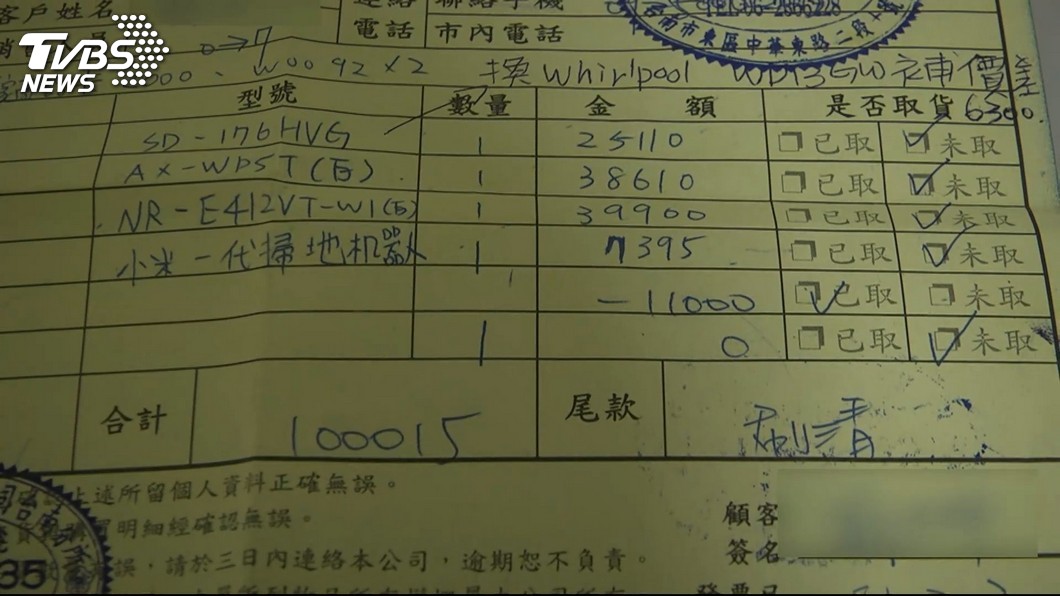 客戶姓名 連絡電話 聯絡手機 市內電話
TEL:06-2686728
台南市東區中華東路二段
TVBS NEWS
W0092×2 換 Whirlpool 補價差 6300.
型號 數量 金額 是否取貨
SD-176HVG 1 25110 已取 未取
AX-WP5T(百) 1 38610 已取 未取
NR-E412VT-W1(百) 1 39900 已取 未取
小米一代掃地机器人 1 7395 已取 未取
-11000 已取 未取
1 0 已取 未取
合計 100015 尾款 刷清
上述所留個人資料正確無誤。
明細經確認無誤。
誤,請於三日內連絡本公司,逾期恕不負責。
顧客簽名
35